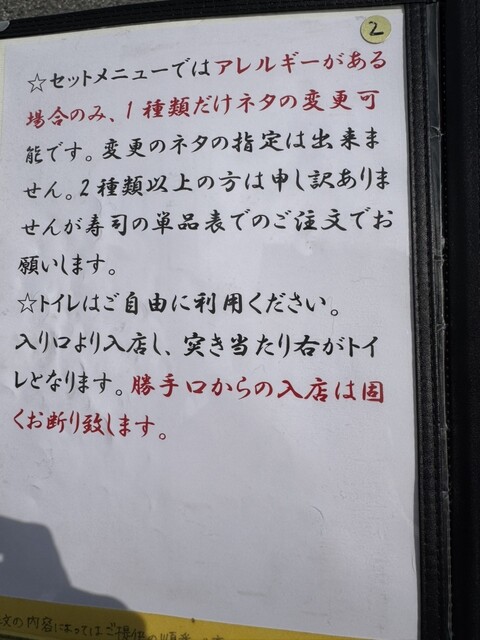 2
☆セットメニューではアレルギーがある
場合のみ、1種類だけネタの変更可
能です。変更のネタの指定は出来ま
せん。2種類以上の方は申し訳ありま
せんが寿司の単品表でのご注文でお
願いします。
☆トイレはご自由に利用ください。
入り口より入店し、突き当たり右がトイ
レとなります。勝手口からの入店は固
くお断り致します。
文の内容によってはご提供の順番